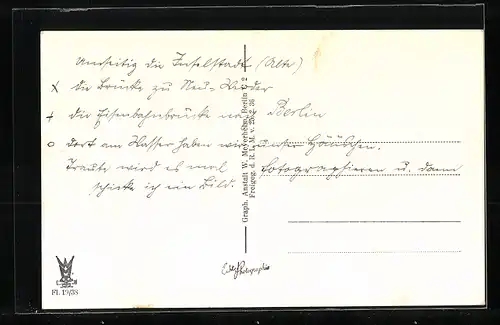 umseitig die Inselstadt (Alte)
x die Brücke zu Neu-Werder
+ die Eisenbahnbrücke nach Berlin
o dort am Wasser haben wir unser Häuschen.
Traute wird es mal fotographieren u. dann
schicke ich ein Bild.
Graph. Anstalt W. Meyerheim, Berlin N 2
Freigeg. d. R. L. M. v.
Fl. 19/38